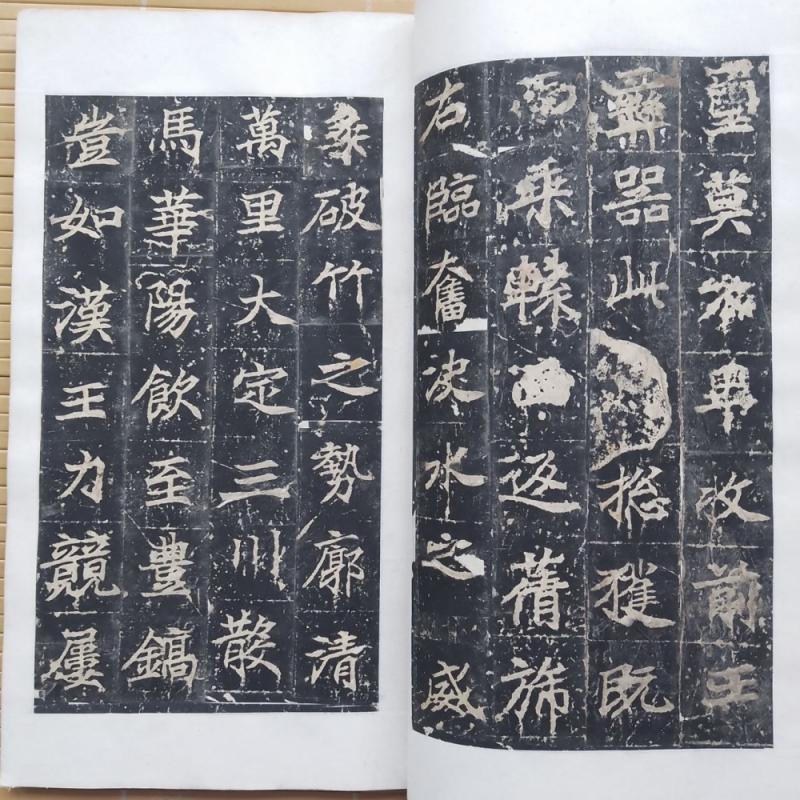 莫收前王
彝器此揔獲既
而乘轅西返蒨旆
右臨奮決水之威
乘破竹之勢廓清
萬里大定三川散
馬華陽飲至豐鎬
豈如漢王力競屢